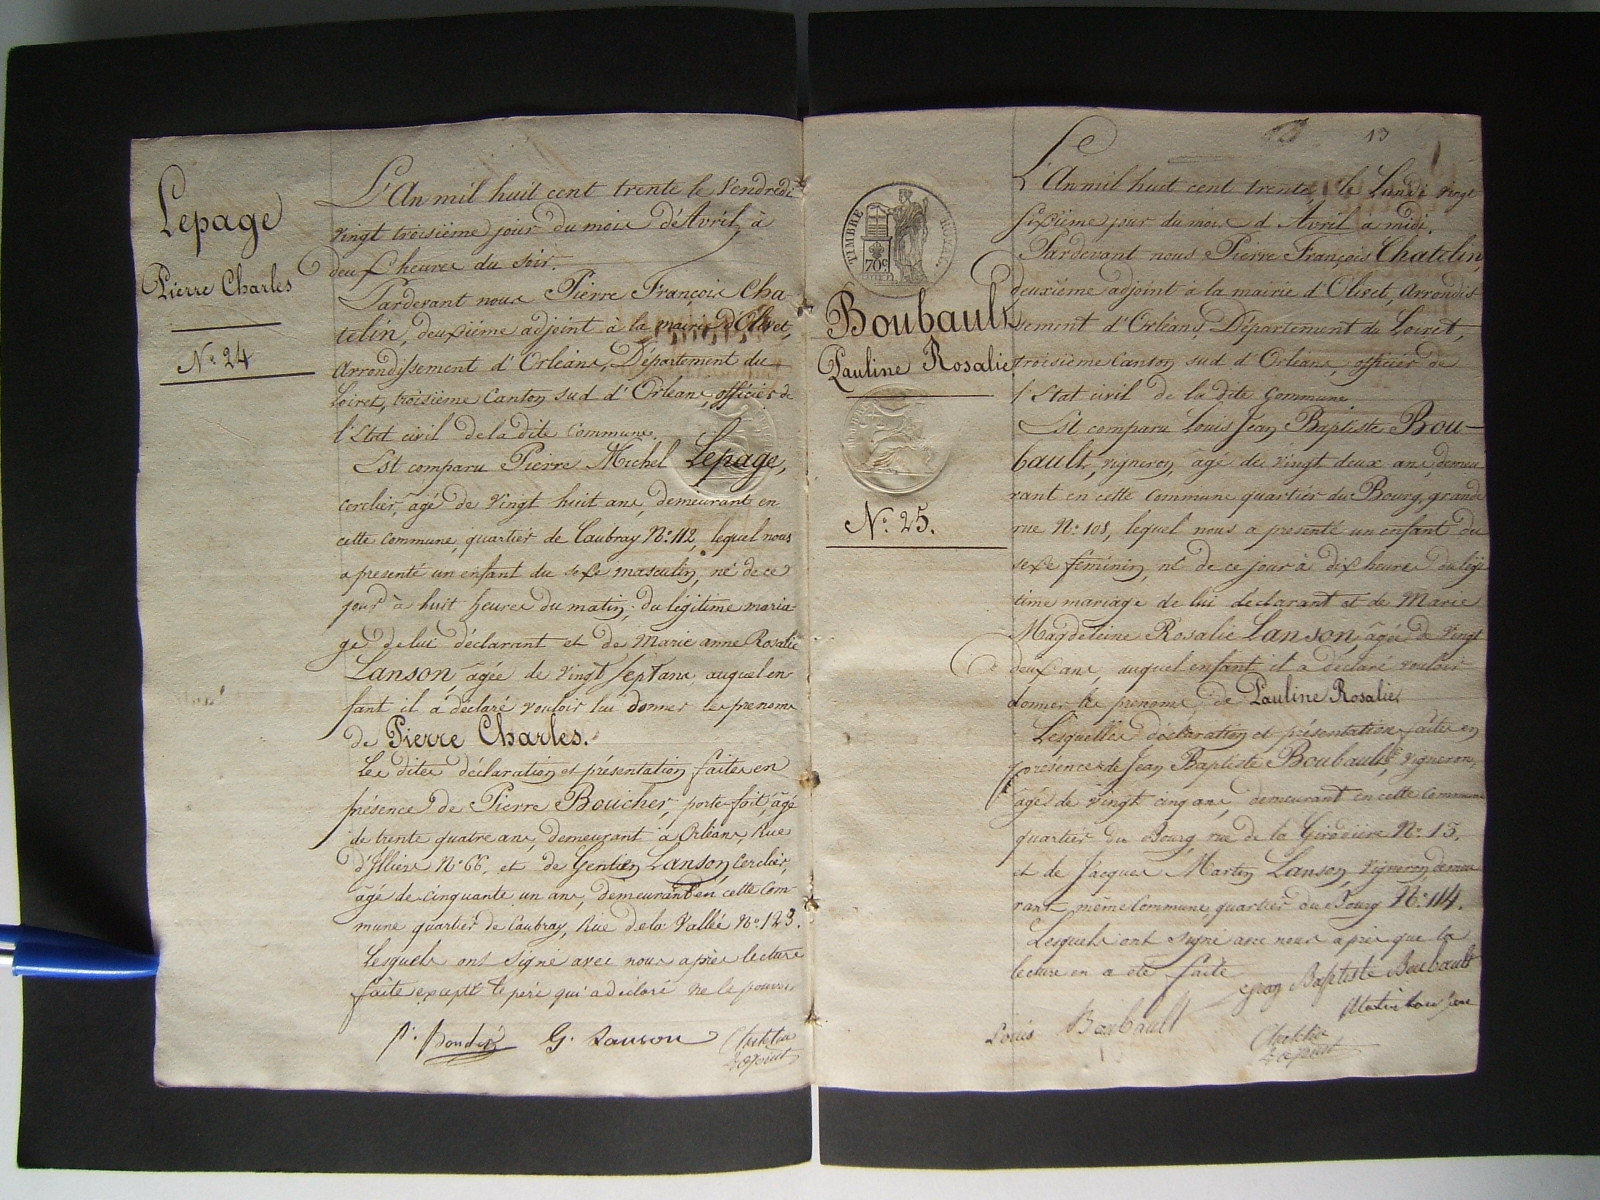 Lepage
Pierre Charles
N.° 24
L'An mil huit cent trente le Vendredi
vingt troisième jour du mois d'Avril, à
deux heures du soir.
Pardevant nous Pierre François Cha-
telin, deuxième adjoint à la mairie d'Olivet,
Arrondissement d'Orléans, Département du
Loiret, troisième Canton sud d'Orléans, officier de
l'Etat civil de la dite Commune.
Est comparu Pierre Michel Lepage,
cerclier, agé de vingt huit ans, demeurant en
cette Commune, quartier de Caubray N° 112, lequel nous
a presenté un enfant du sexe masculin, né de ce
jour à huit heures du matin, du légitime maria-
ge de lui déclarant et de Marie anne Rosalie
Lanson, âgée de vingt sept ans, auquel en-
fant il à déclaré vouloir lui donner les prenoms
de Pierre Charles.
Les dites déclaration et présentation faites en
présence de Pierre Boucher, porte-foit, âgé
de trente quatre ans, demeurant à Orléans, Rue
d'Illiers N° 66, et de Gentien Lanson, Cerclier,
âgé de cinquante un ans, demeurant en cette Com-
mune quartier de Caubray, Rue de la Vallée N° 123.
Lesquels ont signé avec nous après lecture
faite excepté le père qui a declaré ne le pouvoir
G. Lanson
Chatelin
adjoint
13
TIMBRE ROYAL
70c
Boubault
Pauline Rosalie
N.° 25.
L'An mil huit cent trente, le Lundi vingt
sixième jour du mois d'Avril à midi.
Pardevant nous Pierre François Chatelin,
deuxième adjoint à la mairie d'Olivet, Arrondis
sement d'Orléans, Département du Loiret,
troisième Canton sud d'Orléans, officier de
l'Etat civil de la dite Commune.
Est comparu Louis Jean Baptiste Bou-
bault, vigneron, âgé de vingt deux ans, demeu
rant en cette Commune quartier du Bourg, grande
rue N° 101, lequel nous a presenté un enfant du
sexe féminin, né de ce jour à dix heures du légi
time mariage de lui déclarant et de Marie
Magdeleine Rosalie Lanson, âgée de vingt
deux ans, auquel enfant il a déclaré vouloir
donner les prenoms de Pauline Rosalie
Lesquelles déclaration et présentation faites en
présence de Jean Baptiste Boubault, vigneron,
âgé de vingt cinq ans, demeurant en cette Commune
quartier du Bourg, rue de la N° 13,
et de Jacques Martin Lanson, vigneron, demeu
rant même Commune, quartier du Bourg N° 114.
Lesquels ont signé avec nous après que la
lecture en a été faite
Jean Baptiste Boubault
Louis Boubault
Chatelin
adjoint